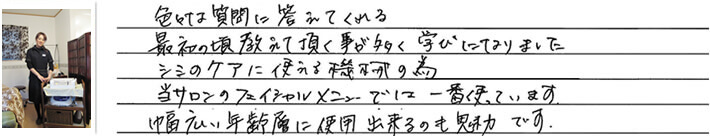 色々な質問に答えてくれる
最初の頃教えて頂く事が多く学びになりました
シミのケアに使える機械の為
当サロンのフェイシャルメニューでは一番使っています.
幅広い年齢層に使用出来るのも魅力です.